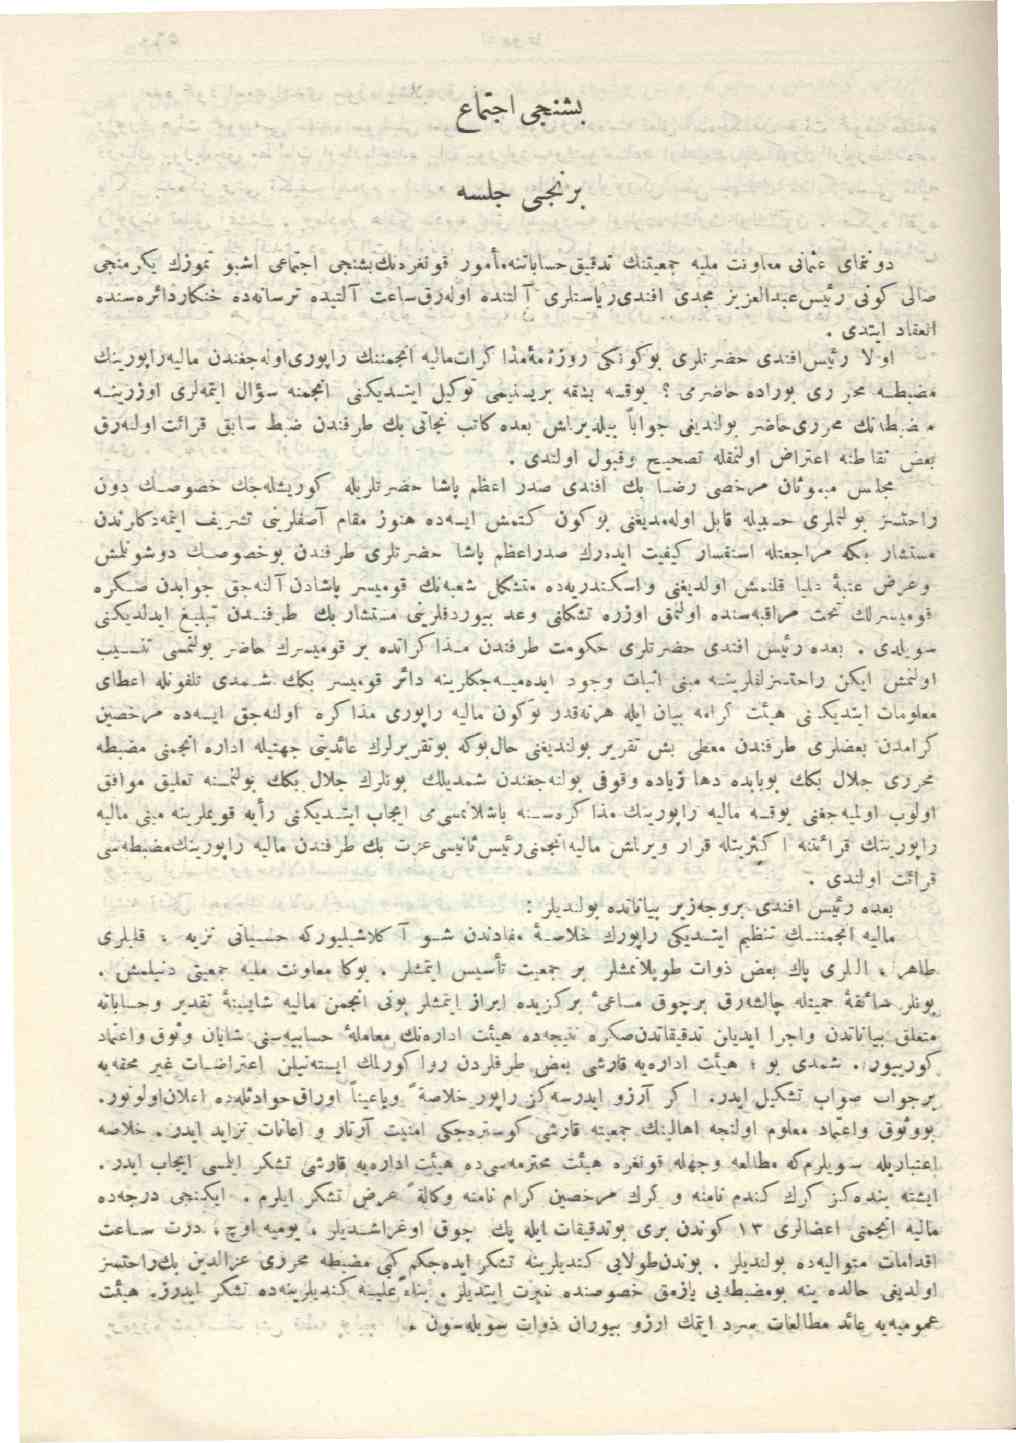 بشنجی اجتماع
برنجی جلسه
دوننمای عثمانی معاونت ملیه جمعیتنك تدقیق حساباتنه مأمور قونغره‌نك بشنجی اجتماعی اشبو تموزك یكرمنجی
صالی كونی رئیس عبدالعزیز مجدی افندی ریاستلری آلتنده اوله‌رق ساعت آلتیده ترسانه‌ده خنكار دائره‌سنده
انعقاد ایتدی .
اولا رئیس افندی حضرتلری بوكونكی روزنامهٔ مذاكرات مالیه انجمننك راپوری اوله‌جغندن مالیه راپورینك
مضبطه محرری بوراده حاضرمی ؟ یوقسه بشقه بریسنیمی توكیل ایتدیكنی انجمنه سؤال ایتمه‌لری اوزرینه
مضبطه‌نك محرری حاضر بولندیغی جواباً بیلدیرلمش بعده كاتب نجاتی بك طرفندن ضبط سابق قرائت اولنه‌رق
بعض نقاطنه اعتراض اولنمقله تصحیح وقبول اولندی .
مجلس مبعوثان مرخصی رضا بك افندی صدر اعظم پاشا حضرتلریله كوریشله‌جك خصوصك دون
راحتسز بولنملری حسبیله قابل اوله‌مدیغنی بوكون كتمش ایسه‌ده هنوز مقام آصفلرینی تشریف ایتمه‌دكارندن
مستشار بكه مراجعتله استفسار كیفیت ایده‌رك صدراعظم پاشا حضرتلری طرفندن بوخصوصك دوشونلمش
وعرض عتبهٔ علیا قلنمش اولدیغنی واسكندریه‌ده متشكل شعبه‌نك قومیسر پاشادن آلنه‌جق جوابدن صكره
قومیسرلك تحت مراقبه‌سنده اولنمق اوزره تشكلنی وعد بیوردقلرینی مستشار بك طرفندن تبلیغ ایدلدیكنی
سویلدی . بعده رئیس افندی حضرتلری حكومت طرفندن مذاكراتده بر قومیسرك حاضر بولنمسی تنسیب
اولنمش ایكن راحتسزلقلرینه مبنی اثبات وجود ایده‌میه‌جكلرینه دائر قومیسر بكك شمدی تلفونله اعطای
معلومات ایتدیكنی هیئت كرامه بیان ایله هرنه‌قدر بوكون مالیه راپوری مذاكره اولنه‌جق ایسه‌ده مرخصین
كرامدن بعضلری طرفندن معطی بش تقریر بولندیغنی حال بوكه بوتقریرلرك عائدیتی جهتیله اداره انجمنی مضبطه
محرری جلال بكك بوبابده دها زیاده وقوفی بولنه‌جغندن شمدیلك بونلرك جلال بكك بولنمسنه تعلیق موافق
اولوب اولمیه‌جغنی یوقسه مالیه راپورینك مذاكره‌سنه باشلانمسی‌می ایجاب ایتدیكنی رأیه قویملرینه مبنی مالیه
راپورینك قرائتنه اكثریتله قرار ویرلمش مالیه انجمنی رئیس ثانیسی عزت بك طرفندن مالیه راپورینك مضبطه‌سی
قرائت اولندی .
بعده رئیس افندی بروجه زیر بیاناتده بولندیلر :
مالیه انجمننك تنظیم ایتدیكی راپورك خلاصهٔ مفادندن شو آكلاشیلیوركه حسیاتی نزیه ، قلبلری
طاهر ، اللری پاك بعض ذوات طوپلانمشلر بر جمعیت تأسیس ایتمشلر . بوكا معاونت ملیه جمعیتی دنیلمش .
بونلر سائقهٔ حمیتله چالشه‌رق برچوق مساعیٔ بركزیده ابراز ایتمشلر بونی انجمن مالیه شایستهٔ تقدیر وحساباته
متعلق بیاناتدن واجرا ایدیلن تدقیقاتدن صكره نتیجه‌ده هیئت اداره‌نك معاملهٔ حسابیه‌سنی شایان وثوق واعتماد
كورییور. شمدی بو ؛ هیئت اداره‌یه قارشی بعض طرفلردن روا كورلمك ایسته‌نیلن اعتراضات غیر محقه‌یه
برجواب صواب تشكیل ایدر. اكر آرزو ایدرسه‌كز راپور خلاصهً ویاعیناً اوراق حوادثله‌ده اعلان اولونور.
بووثوق واعتماد معلوم اولنجه اهالینك جمعیته قارشی كوستره‌جكی امنیت آرتار و اعانات تزاید ایدر . خلاصه
اعتباریله سویلرم‌كه مطالعه وجهله قونغره هیئت محترمه‌سی‌ده هیئت اداره‌یه قارشی تشكر ایلمسی ایجاب ایدر .
ایشته بنده‌كز كرك كندم نامنه و كرك مرخصین كرام نامنه وكالةً عرض تشكر ایلرم . ایكنجی درجه‌ده
مالیه انجمنی اعضالری ١٣ كوندن بری بوتدقیقات ایله پك چوق اوغراشدیلر ، یومیه اوچ ، درت ساعت
اقدامات متوالیه‌ده بولندیلر . بوندن طولایی كندیلرینه تشكر ایده‌جكم كی مضبطه محرری عزالدین بك راحتسز
اولدیغی حالده ینه بومضبطه‌یی یازمق خصوصنده غیرت ایتدیلر . بناءً علیه كندیلرینه‌ده تشكر ایدرز. هیئت
عمومیه‌یه عائد مطالعات سرد ایتمك ارزو بیوران ذوات سویله‌سون .